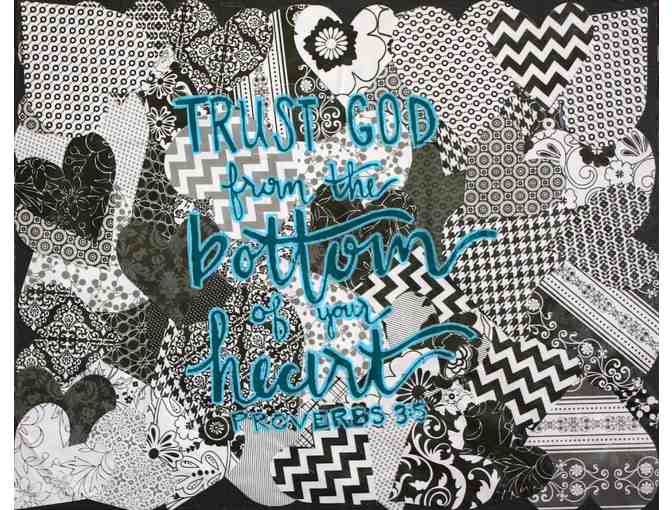 TRUST GOD
from the
bottom
of your
heart
PROVERBS 3:5